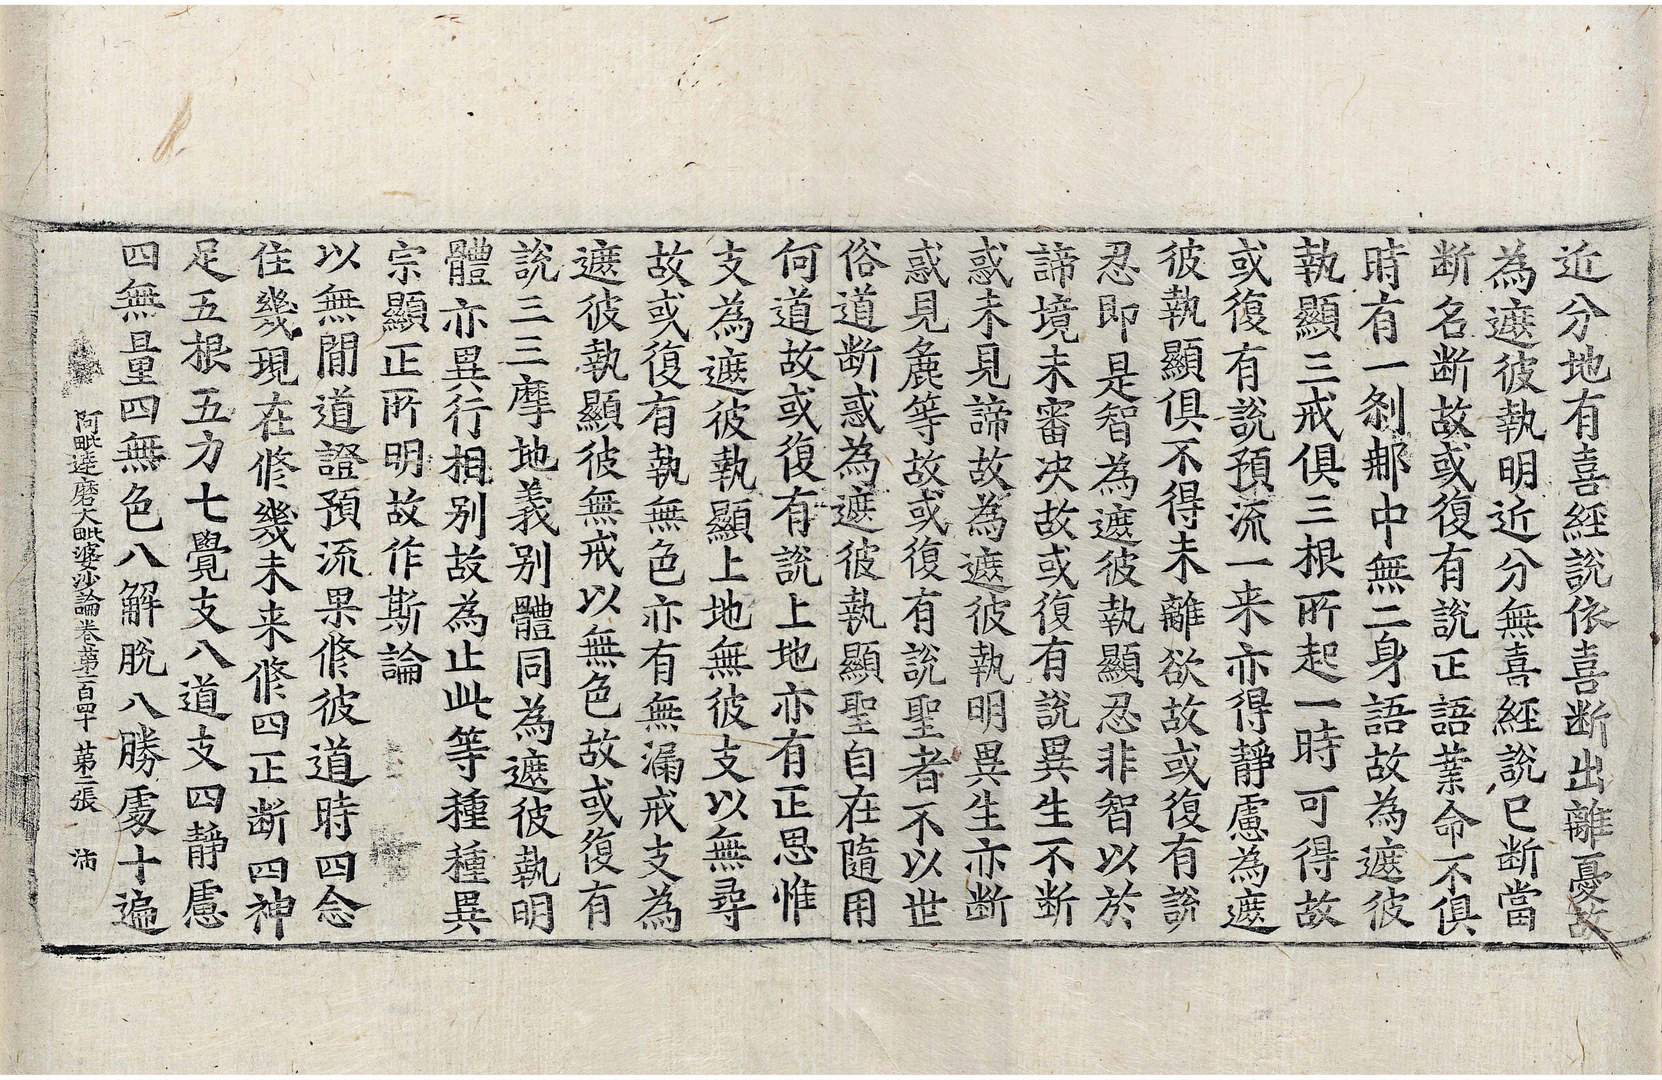 近分地有喜經說依喜断出離憂故
為遮彼執明近分無喜經說已断當
断名断故或復有說正語業命不俱
時有一剎那中無二身語故為遮彼
執顯三戒俱三根所起一時可得故
或復有說預流一来亦得靜慮為遮
彼執顯俱不得未離欲故或復有說
忍即是智為遮彼執顯忍非智以於
諦境未審決故或復有說異生不断
惑未見諦故為遮彼執明異生亦断
惑見麁等故或復有說聖者不以世
俗道断惑為遮彼執顯聖自在隨用
何道故或復有說上地亦有正思惟
支為遮彼執顯上地無彼支以無尋
故或復有執無色亦有無漏戒支為
遮彼執顯彼無戒以無色故或復有
說三三摩地義别體同為遮彼執明
體亦異行相别故為止此等種種異
宗顯正所明故作斯論
以無間道證預流果修彼道時四念
住幾現在修幾未来修四正断四神
足五根五力七覺支八道支四靜慮
四無量四無色八解脫八勝處十遍
阿毗達磨大毗婆沙論卷第一百四十 第二張